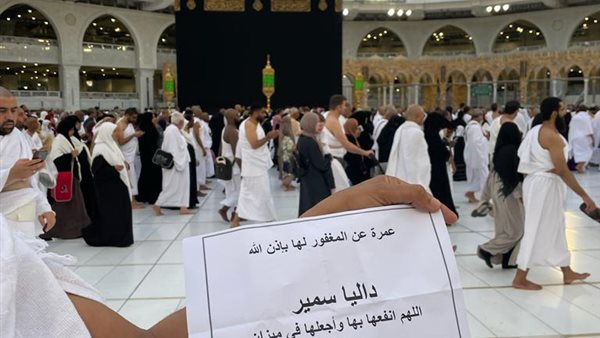 عمرة عن المغفور لها بإذن الله
داليا سمير
اللهم انفعها بها وأجعلها في ميزان